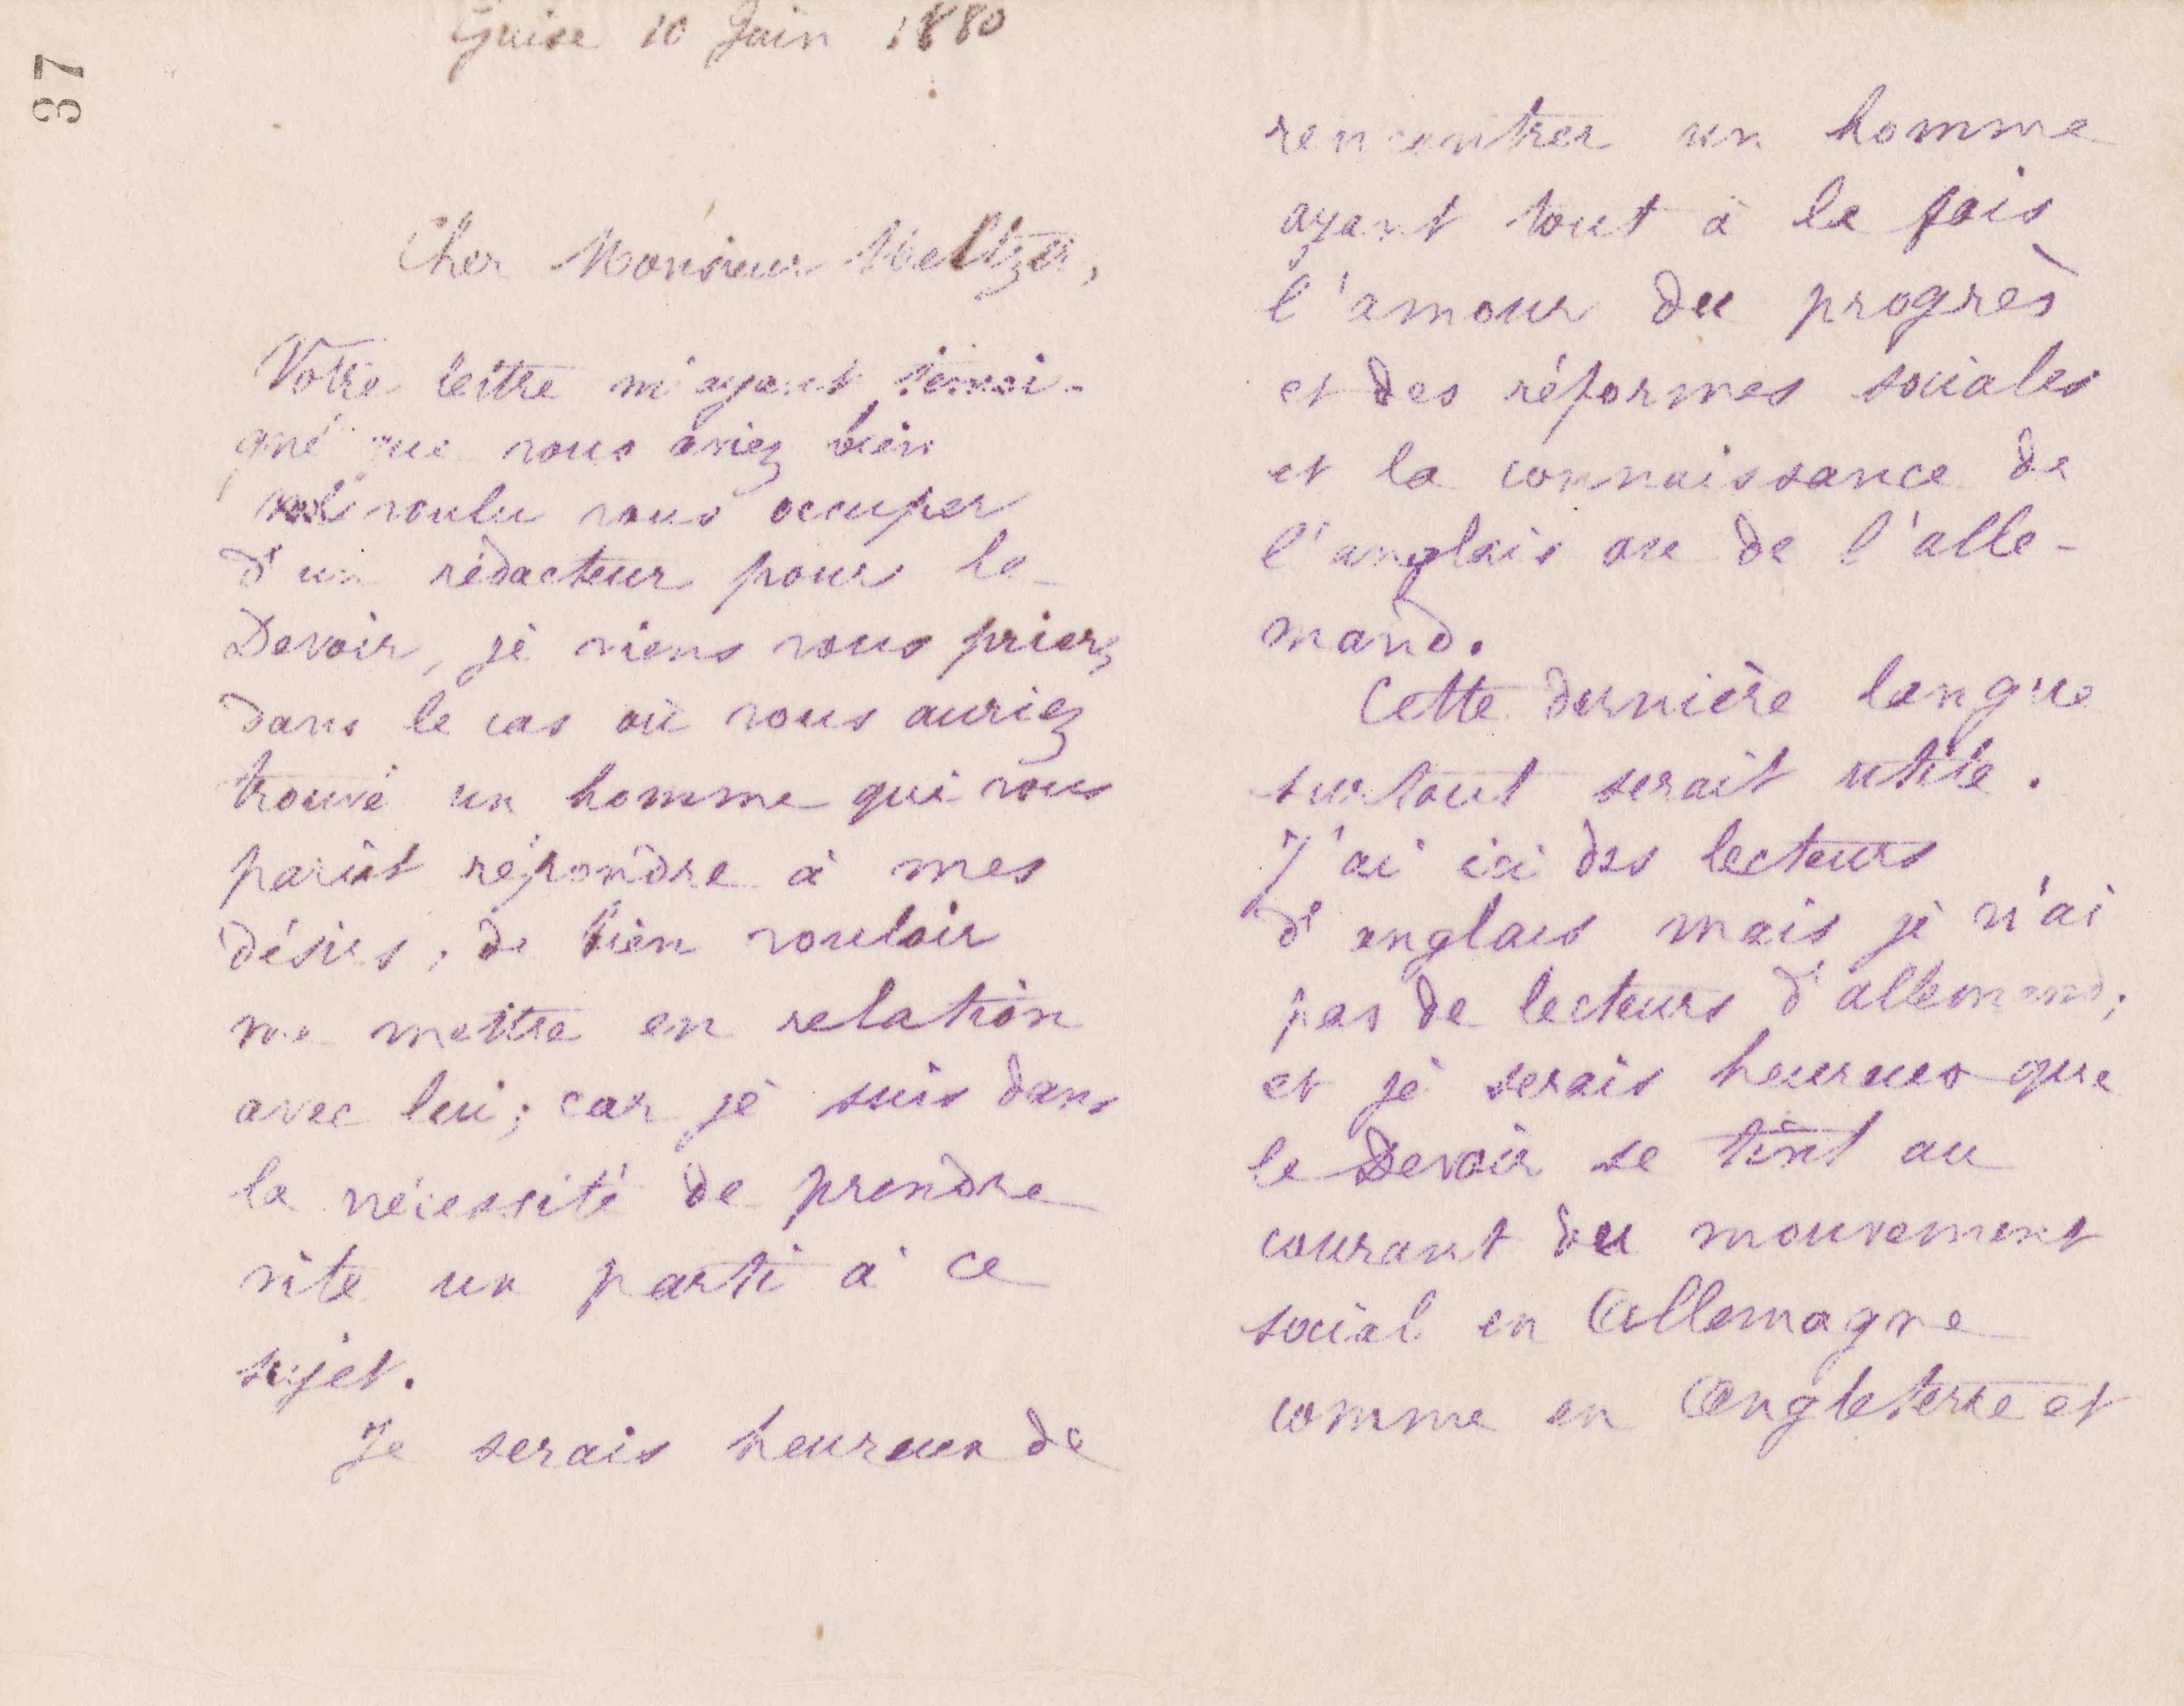 37
Guise 10 Juin 1880
Cher Monsieur Meltzer,
Votre lettre m'ayant témoi-
gné que vous aviez bien
voulu vous occuper
d'un rédacteur pour le
Devoir, je viens vous prier,
dans le cas où vous auriez
trouvé un homme qui vous
parût répondre à mes
désirs, de bien vouloir
me mettre en relation
avec lui; car je suis dans
la nécessité de prendre
vite un parti à ce
sujet.
Je serais heureux de
rencontrer un homme
ayant tout à la fois
l'amour du progrès
et des réformes sociales
et la connaissance de
l'anglais ou de l'alle-
mand.
Cette dernière langue
surtout serait utile.
J'ai ici des lecteurs
d'anglais mais je n'ai
pas de lecteurs d'allemand;
et je serais heureux que
le Devoir se tînt au
courant du mouvement
social en Allemagne
comme en Angleterre et